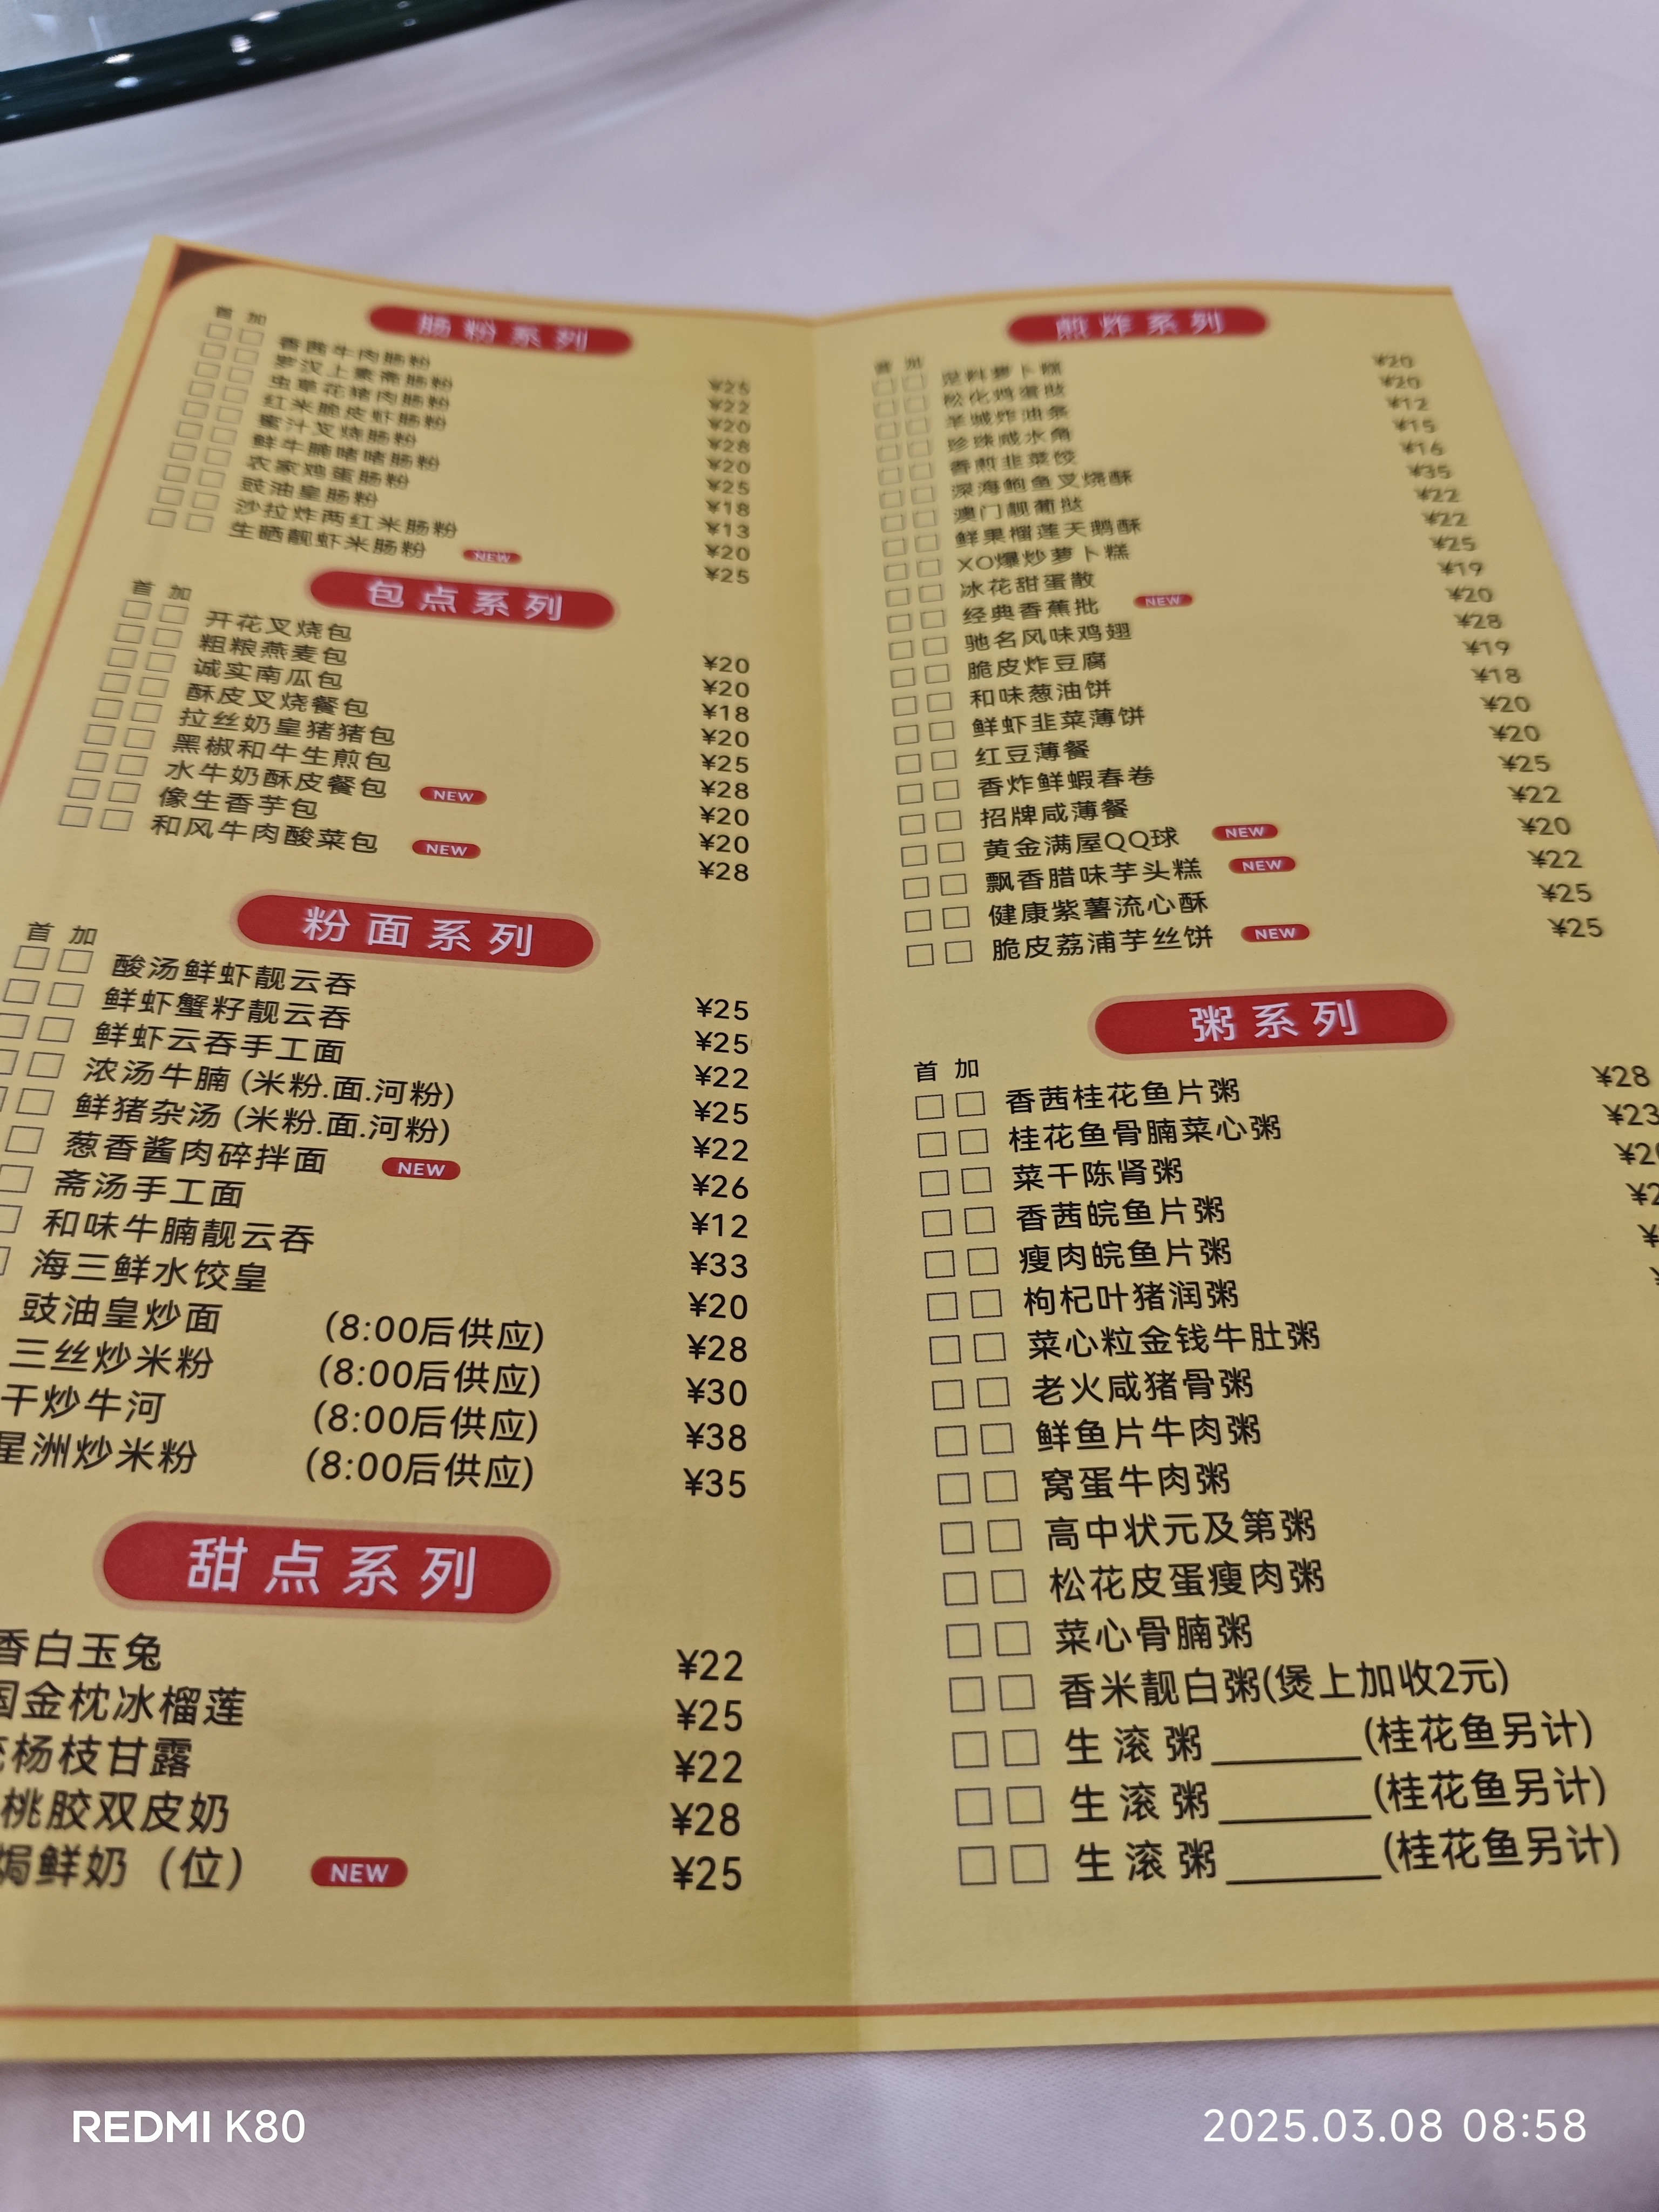 肠粉系列
首 加
香茜牛肉肠粉 ¥25
罗汉上素斋肠粉 ¥22
虫草花猪肉肠粉 ¥20
红米脆皮虾肠粉 ¥28
蜜汁叉烧肠粉 ¥20
鲜牛腩啫啫肠粉 ¥25
农家鸡蛋肠粉 ¥18
豉油皇肠粉 ¥13
沙拉炸两红米肠粉 ¥20
生晒靓虾米肠粉 NEW ¥25
包点系列
首 加
开花叉烧包 ¥20
粗粮燕麦包 ¥20
诚实南瓜包 ¥18
酥皮叉烧餐包 ¥20
拉丝奶皇猪猪包 ¥25
黑椒和牛生煎包 ¥28
水牛奶酥皮餐包 NEW ¥20
像生香芋包 ¥20
和风牛肉酸菜包 NEW ¥28
粉面系列
首 加
酸汤鲜虾靓云吞 ¥25
鲜虾蟹籽靓云吞 ¥25
鲜虾云吞手工面 ¥22
浓汤牛腩 (米粉.面.河粉) ¥25
鲜猪杂汤 (米粉.面.河粉) ¥22
葱香酱肉碎拌面 NEW ¥26
斋汤手工面 ¥12
和味牛腩靓云吞 ¥33
海三鲜水饺皇 ¥20
豉油皇炒面 (8:00后供应) ¥28
三丝炒米粉 (8:00后供应) ¥30
干炒牛河 (8:00后供应) ¥38
星洲炒米粉 (8:00后供应) ¥35
甜点系列
香白玉兔 ¥22
国金枕冰榴莲 ¥25
杨枝甘露 ¥22
桃胶双皮奶 ¥28
焗鲜奶（位） NEW ¥25
煎炸系列
首 加
足料萝卜糕 ¥20
松化鸡蛋挞 ¥20
羊城炸油条 ¥12
珍珠咸水角 ¥15
香煎韭菜饺 ¥16
深海鲍鱼叉烧酥 ¥35
澳门靓葡挞 ¥22
鲜果榴莲天鹅酥 ¥22
XO爆炒萝卜糕 ¥25
冰花甜蛋散 ¥19
经典香蕉批 NEW ¥20
驰名风味鸡翅 ¥28
脆皮炸豆腐 ¥19
和味葱油饼 ¥18
鲜虾韭菜薄饼 ¥20
红豆薄餐 ¥20
香炸鲜蝦春卷 ¥25
招牌咸薄餐 ¥22
黄金满屋QQ球 NEW ¥20
飘香腊味芋头糕 NEW ¥22
健康紫薯流心酥 ¥25
脆皮荔浦芋丝饼 NEW ¥25
粥系列
首 加
香茜桂花鱼片粥 ¥28
桂花鱼骨腩菜心粥 ¥23
菜干陈肾粥
香茜皖鱼片粥
瘦肉皖鱼片粥
枸杞叶猪润粥
菜心粒金钱牛肚粥
老火咸猪骨粥
鲜鱼片牛肉粥
窝蛋牛肉粥
高中状元及第粥
松花皮蛋瘦肉粥
菜心骨腩粥
香米靓白粥(煲上加收2元)
生滚粥______(桂花鱼另计)
生滚粥______(桂花鱼另计)
生滚粥______(桂花鱼另计)
REDMI K80
2025.03.08 08:58